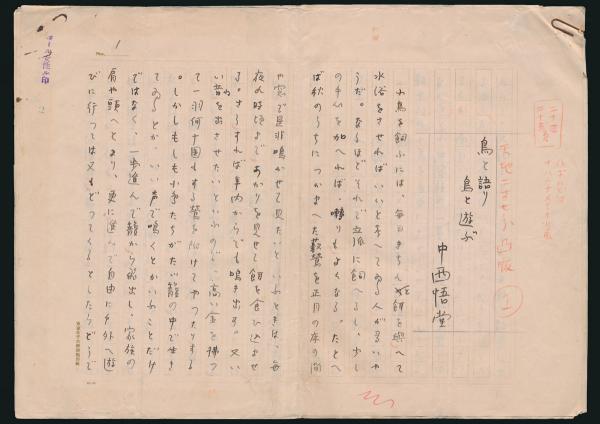 鳥と語り
鳥と遊ぶ
中西悟堂
小鳥を飼ふには、毎日きちんと餌を与へて
水浴をさせればいいと考へてゐる人が多いや
うだ。なるほどそれで立派に飼へるし、少し
の手心を加へれば、囀りもよくなる。たとへ
ば秋のうちにつかまへた藪鶯を正月の床の間
や窓で是非鳴かせて見たいといふときは、毎
夜の時頃まであかりを見せて餌を食ひ込ませ
る。さうすれば年内からでも鳴き出す。又い
い音を出させたいといふので、高い金を拂つ
て一羽何十圓もする鶯を附けてやつたりする
。しかしもしも小鳥たちがただ籠の中で生き
てゐるとか、いい声で鳴くとかいふことだけ
ではなく、一歩進んで籠から脱出し、家族の
肩や頭へとまり、更に進んで自由に戸外へ遊
びに行つては又もどつてくるとしたらどうで
1